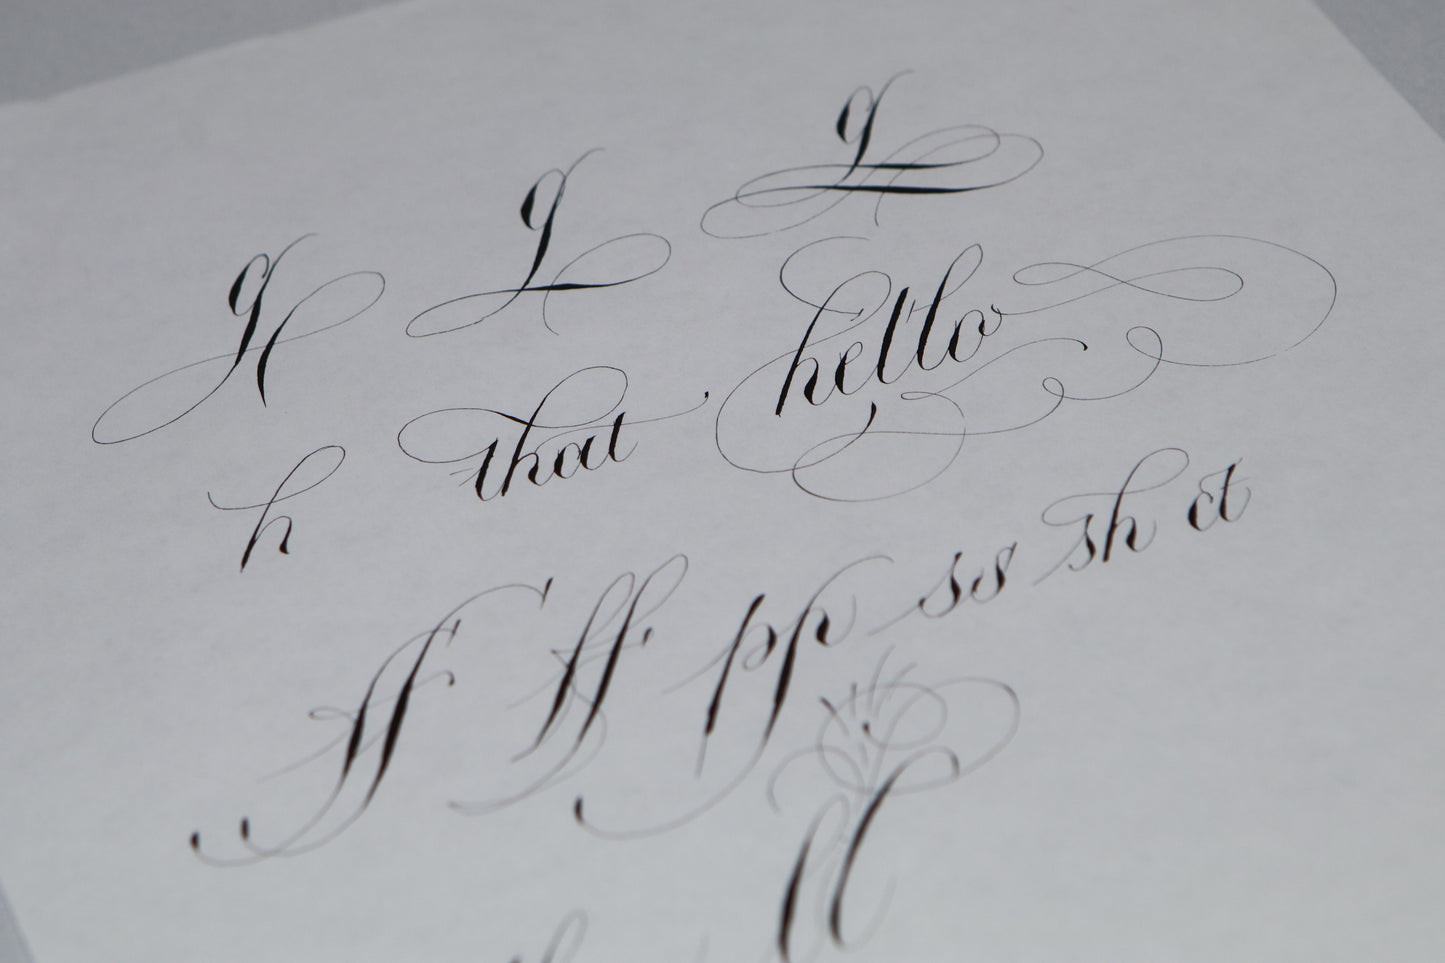 g g g
h that hello
ff ff pp ss sh ct
ll